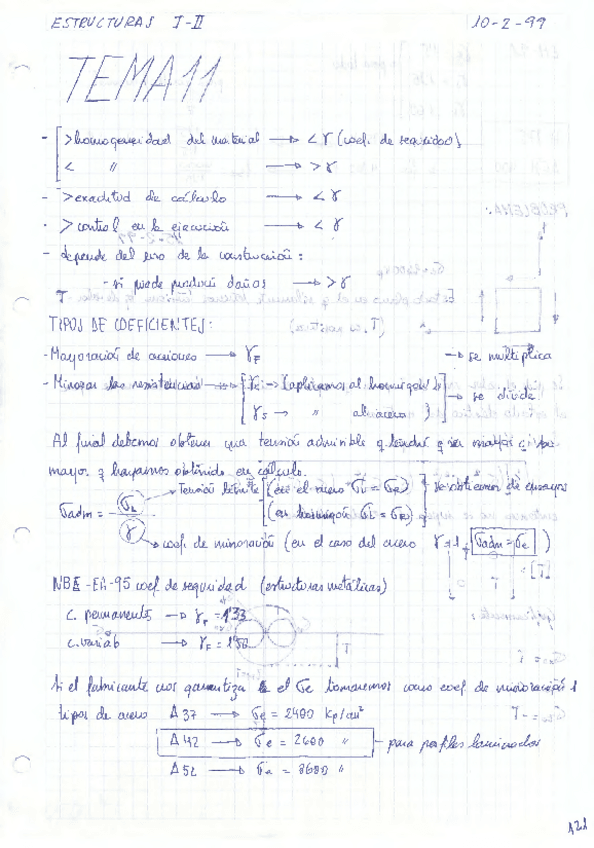 ESTRUCTURAS I-II 10-2-99
TEMA 11
- > homogeneidad del material → < γ (coef. de seguridad)
< " → > γ
- > exactitud de cálculo → < γ
- > control en la ejecución → < γ
- depende del uso de la construcción:
- si puede producir daños → > γ
TIPOS DE COEFICIENTES:
- Mayoración de acciones → γF → se multiplica
- Minorar las resistencias → → (aplicamos al hormigón) → se divide
γs → " al acero
Al final debemos obtener una tensión admisible q tendrá q ser mayor
mayor q hayamos obtenido en cálculo.
σadm = σL / γ → Tensión límite (en el acero σL = σe) se obtiene de ensayos
(en hormigón σL = σR)
→ coef. de minoración (en el caso del acero γ = 1 σadm = σe)
NBE-EA-95 coef. de seguridad (estructuras metálicas)
c. permanentes → γF = 1'33
c. variab → γF = 1'50
Si el fabricante nos garantiza el σe tomaremos como coef. de minoración 1
tipos de acero A37 → σe = 2400 kp/cm²
A42 → σe = 2600 " → para perfiles laminados
A52 → = 3600 "
121